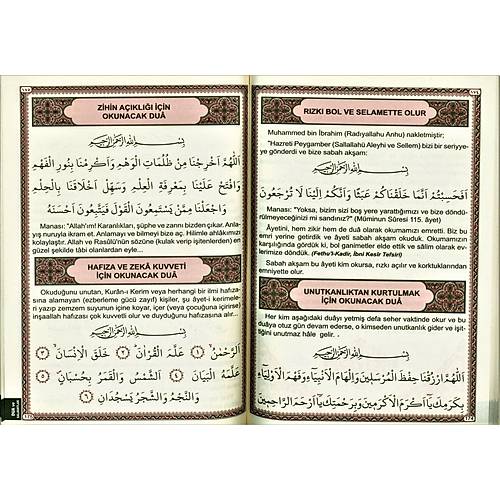 ZİHİN AÇIKLIĞI İÇİN
OKUNACAK DUÂ
بِسْمِ اللهِ الرَّحْمٰنِ الرَّحِيمِ
اَللّٰهُمَّ اَخْرِجْنَا مِنْ ظُلُمَاتِ الْوَهْمِ وَاَكْرِمْنَا بِنُورِ الْفَهْمِ
وَافْتَحْ عَلَيْنَا بِمَعْرِفَةِ الْعِلْمِ وَسَهِّلْ اَخْلَاقَنَا بِالْحِلْمِ
وَاجْعَلْنَا مِمَّنْ يَسْتَمِعُونَ الْقَوْلَ فَيَتَّبِعُونَ اَحْسَنَهُ
Manası: "Allah'ım! Karanlıkları, şüphe ve zannı bizden çıkar. Anla-
yış nuruyla ikram et. Anlamayı ve bilmeyi bize aç. Hilimle ahlâkımızı
kolaylaştır. Allah ve Rasûlü'nün sözüne (kulak verip işitenlerden) en
güzel şekilde tâbi olanlardan eyle...
HAFIZA VE ZEKÂ KUVVETİ
İÇİN OKUNACAK DUÂ
Okuduğunu unutan, Kurân-ı Kerim veya herhangi bir ilmi hafıza-
sına alamayan (ezberleme gücü zayıf) kişiler, şu âyet-i kerimele-
ri yazıp zemzem suyunun içine koyar, içer (veya çocuğuna içirir)
inşaallah hafızası çok kuvvetli olur ve duyduğunu hafızasına alır...
بِسْمِ اللهِ الرَّحْمٰنِ الرَّحِيمِ
اَلرَّحْمٰنُ ۙ ﴿١﴾ عَلَّمَ الْقُرْاٰنَ ۜ ﴿٢﴾ خَلَقَ الْاِنْسَانَ ۙ ﴿٣﴾
عَلَّمَهُ الْبَيَانَ ﴿٤﴾ اَلشَّمْسُ وَالْقَمَرُ بِحُسْبَانٍ ۖ ﴿٥﴾
وَالنَّجْمُ وَالشَّجَرُ يَسْجُدَانِ ﴿٦﴾
RIZKI BOL VE SELAMETTE OLUR
بِسْمِ اللهِ الرَّحْمٰنِ الرَّحِيمِ
Muhammed bin İbrahim (Radıyallahu Anhu) nakletmiştir;
"Hazreti Peygamber (Sallallahü Aleyhi ve Sellem) bizi bir seriyye-
ye gönderdi ve bize sabah akşam:
اَفَحَسِبْتُمْ اَنَّمَا خَلَقْنَاكُمْ عَبَثًا وَاَنَّكُمْ اِلَيْنَا لَا تُرْجَعُونَ
Manası: "Yoksa, bizim sizi boş yere yarattığımızı ve bize döndü-
rülmeyeceğinizi mi sandınız?" (Müminun Sûresi 115. âyet)
Âyetini, hem zikir hem de duâ olarak okumamızı emretti. Biz bu
emri yerine getirdik ve âyeti sabah akşam okuduk. Okumamızın
karşılığında gördük ki, bol ganimetler elde ettik ve sâlim olarak ev-
lerimize döndük. (Fethu'l-Kadir, İbni Kesir Tefsiri)
Sabah akşam bu âyeti kim okursa, rızkı açılır ve korktuklarından
emniyette olur.
UNUTKANLIKTAN KURTULMAK
İÇİN OKUNACAK DUÂ
Her kim aşağıdaki duâyı yetmiş defa seher vaktinde okur ve bu
duâya otuz gün devam ederse, o kimseden unutkanlık gider ve işit-
tiğini unutmaz hâle gelir. .
بِسْمِ اللهِ الرَّحْمٰنِ الرَّحِيمِ
اَللّٰهُمَّ ارْزُقْنَا حِفْظَ الْمُرْسَلِينَ وَاِلْهَامَ الْاَنْبِيَاءِ وَفَهْمَ الْاَوْلِيَاءِ
بِكَرَمِكَ يَا اَكْرَمَ الْاَكْرَمِينَ وَبِرَحْمَتِكَ يَا اَرْحَمَ الرَّاحِمِينَ